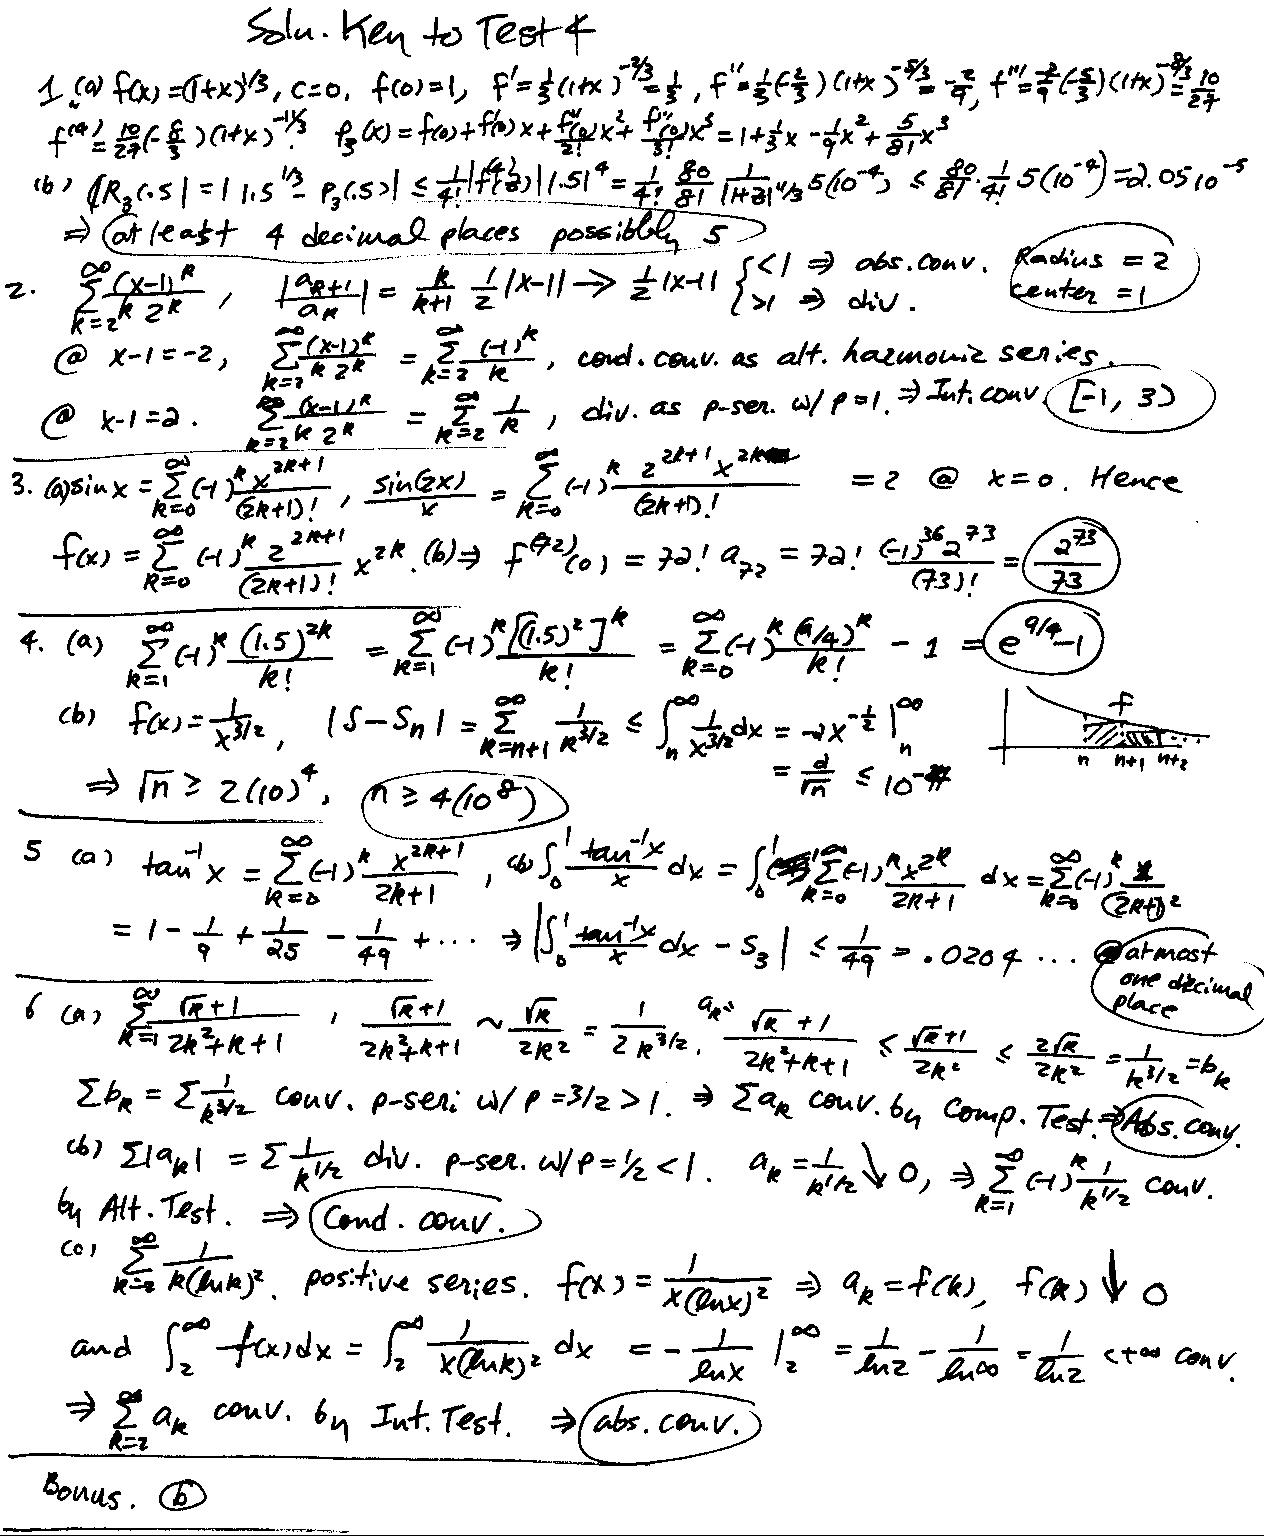 Soln. Key to Test 4
1 (a) f(x) = (1+x)^{1/3}, c=0, f(0)=1, f' = 1/3 (1+x)^{-2/3} = 1/3, f'' = 1/3 (-2/3) (1+x)^{-5/3} = -2/9, f''' = -2/9 (-5/3) (1+x)^{-8/3} = 10/27
f^{(4)} = 10/27 (-8/3) (1+x)^{-11/3} P_3(x) = f(0) + f'(0) x + f''(0)/2! x^2 + f'''(0)/3! x^3 = 1 + 1/3 x - 1/9 x^2 + 5/81 x^3
(b) |R_3(.5)| = | 1.5^{1/3} - P_3(.5)| ≤ 1/4! |f^{(4)}(z)| |.5|^4 = 1/4! 80/81 1/|1+z|^{11/3} 5(10^{-4}) ≤ 80/81 · 1/4! 5(10^{-4}) = 2.05 10^{-5}
⇒ at least 4 decimal places possibly 5
2. ∑_{k=2}^∞ (x-1)^k / k 2^k , |a_{k+1}/a_k| = k/k+1 1/2 |x-1| → 1/2 |x-1| { <1 ⇒ abs. conv. >1 ⇒ div. Radius = 2 center = 1
@ x-1 = -2, ∑_{k=2}^∞ (x-1)^k / k 2^k = ∑_{k=2}^∞ (-1)^k / k , cond. conv. as alt. harmonic series.
@ x-1 = 2. ∑_{k=2}^∞ (x-1)^k / k 2^k = ∑_{k=2}^∞ 1/k , div. as p-ser. w/ p=1. ⇒ Int. conv. [-1, 3)
3. (a) sin x = ∑_{k=0}^∞ (-1)^k x^{2k+1} / (2k+1)! , sin(2x)/x = ∑_{k=0}^∞ (-1)^k 2^{2k+1} x^{2k} / (2k+1)! = 2 @ x=0. Hence
f(x) = ∑_{k=0}^∞ (-1)^k 2^{2k+1} / (2k+1)! x^{2k}. (b) ⇒ f^{(72)}(0) = 72! a_{72} = 72! (-1)^{36} 2^{73} / (73)! = 2^{73} / 73
4. (a) ∑_{k=1}^∞ (-1)^k (1.5)^{2k} / k! = ∑_{k=1}^∞ (-1)^k [(1.5)^2]^k / k! = ∑_{k=0}^∞ (-1)^k (9/4)^k / k! - 1 = e^{9/4} - 1
(b) f(x) = 1/x^{3/2}, |S - S_n| = ∑_{k=n+1}^∞ 1/k^{3/2} ≤ ∫_n^∞ 1/x^{3/2} dx = -2x^{-1/2} |_n^∞ f
= 2/√n ≤ 10^{-4} n n+1 n+2
⇒ √n ≥ 2(10)^4, n ≥ 4(10^8)
5 (a) tan^{-1} x = ∑_{k=0}^∞ (-1)^k x^{2k+1} / 2k+1 , (b) ∫_0^1 tan^{-1}x / x dx = ∫_0^1 ∑_{k=0}^∞ (-1)^k x^{2k} / 2k+1 dx = ∑_{k=0}^∞ (-1)^k 1/(2k+1)^2
= 1 - 1/9 + 1/25 - 1/49 + ··· ⇒ |∫_0^1 tan^{-1}x / x dx - S_3| ≤ 1/49 = .0204 ... at most one decimal place
6 (a) ∑_{k=1}^∞ √k+1 / 2k^2+k+1 , √k+1 / 2k^2+k+1 ~ √k / 2k^2 = 1 / 2 k^{3/2}. a_k = √k+1 / 2k^2+k+1 ≤ √k+1 / 2k^2 ≤ 2√k / 2k^2 = 1/k^{3/2} = b_k
∑b_k = ∑ 1/k^{3/2} conv. p-seri w/ p = 3/2 > 1. ⇒ ∑a_k conv. by Comp. Test. ⇒ Abs. conv.
(b) ∑|a_k| = ∑ 1/k^{1/2} div. p-ser. w/ p = 1/2 < 1. a_k = 1/k^{1/2} ↓ 0, ⇒ ∑_{k=1}^∞ (-1)^k 1/k^{1/2} conv.
by Alt. Test. ⇒ Cond. conv.
(c) ∑_{k=2}^∞ 1 / k(ln k)^2. positive series. f(x) = 1 / x(ln x)^2 ⇒ a_k = f(k), f(k) ↓ 0
and ∫_2^∞ f(x) dx = ∫_2^∞ 1 / x(ln x)^2 dx = - 1/ln x |_2^∞ = 1/ln 2 - 1/ln ∞ = 1/ln 2 < +∞ conv.
⇒ ∑_{k=2}^∞ a_k conv. by Int. Test. ⇒ abs. conv.
Bonus. b